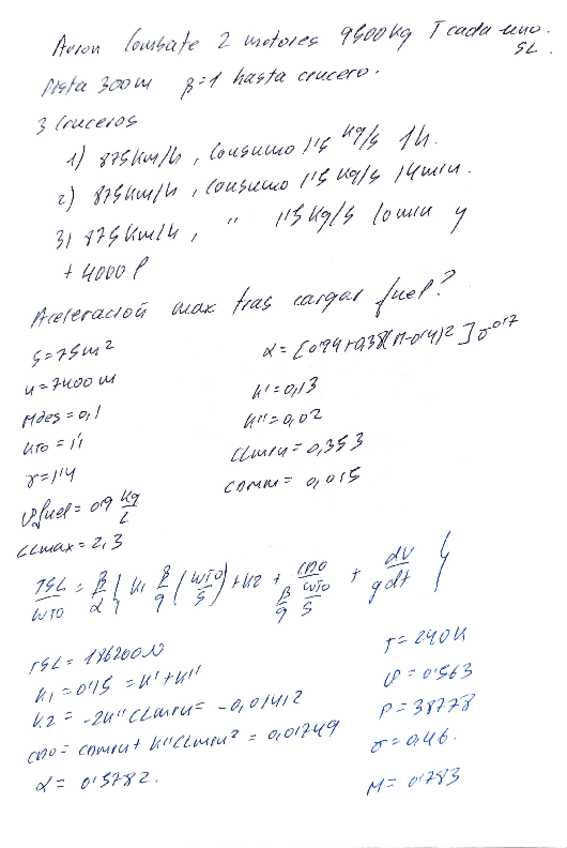 Avion Combate 2 motores 9500kg T cada uno.
SL.
Pista 300m β=1 hasta crucero.
3 Cruceros
1) 875km/h, Consumo 1'5 kg/s 1h.
2) 875km/h, Consumo 1'5 kg/s 14min.
3) 875km/h, " 1'5 kg/s 10min y
+ 4000 l
Aceleración max tras cargar fuel?
S=75m²
α=[0'94+0,38(M-0'4)²]σ^0'7
h=7400m
k'=0,13
μdes=0,1
k''=0,02
kTO=1'1
CLmin=0,353
γ=1'4
CDmin=0,015
ρfuel=0'9 kg/L
CLmax=2,3
TSL/WTO = β/α { k1 β/q (WTO/S) + k2 + CDO/(β/q WTO/S) + dV/gdt }
TSL=186200N
T=240K
k1=0'15=k'+k''
ρ=0'563
k2=-2k''CLmin=-0,01412
P=38778
CDO=CDmin+k''CLmin²=0,01749
σ=0,46.
α=0'5782.
M=0'783